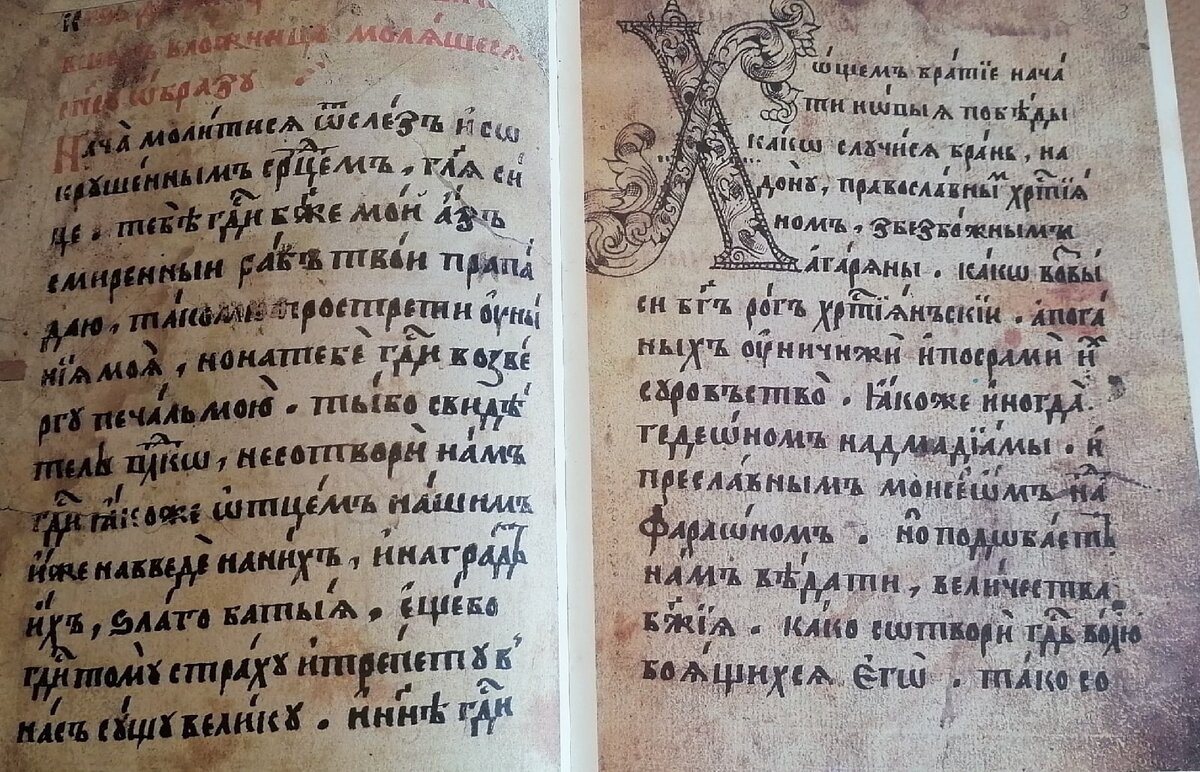 вше въ ложницѣ молѧ́щесѧ
ѡ҆́бразу
Нача̀ моли́тисѧ ѿ сле́зъ и҆ со
круше́ннымъ се́рⷣцемъ, гл҃ѧ си́
це. тебѣ̀ гдⷭ҇и бж҃е мо́й а҆́зъ
смире́нный ра́бъ тво́й припа́
даю, та́ко прострети и ѹ҆ны́
нїѧ моѧ̀, но на тебѐ гдⷭ҇и возве́
ргу печа́ль мою̀. ты́ бо свидѣ́
тель влⷣко, не сотворѝ на́мъ
гдⷭ҇и ꙗ҆́коже ѻ҆тце́мъ на́шимъ
и҆́же навведѐ на ни́хъ, и҆ на гра́дъ
и҆́хъ, ѕла́го баты́ѧ, є҆ще́ бо
гдⷭ҇и тому̀ стра́ху и҆ тре́пету в
на́съ су́щу вели́ку. и нн҃ѣ гдⷭ҇и
Хѡ́щемъ бра́тїе нача́
ти но́выѧ побѣ́ды
ка́кѡ случи́сѧ бра́нь, на
дону̀, правосла́вныⷨ хрⷭ҇тїѧ́
номъ, з безбо́жными
а҆гарѧ́ны. ка́кѡ возвы́
си бг҃ъ ро́гъ хрⷭ҇тїѧ́нъскїй. а҆ пога́
ныхъ ѹ҆ничижѝ и҆ посрамѝ и҆́хъ
суровъство̀. ꙗ҆́коже и҆ногда̀
гедеѡ́номъ над мадїа́мы. и҆
пресла́внымъ моисе́ѡмъ на
фараѡ́номъ. но подоба́етъ
на́мъ вѣ́дати, вели́чества
бж҃їѧ. ка́ко сотворѝ гдⷭ҇ь во́лю
боѧ́щихсѧ є҆гѡ̀. та́ко со